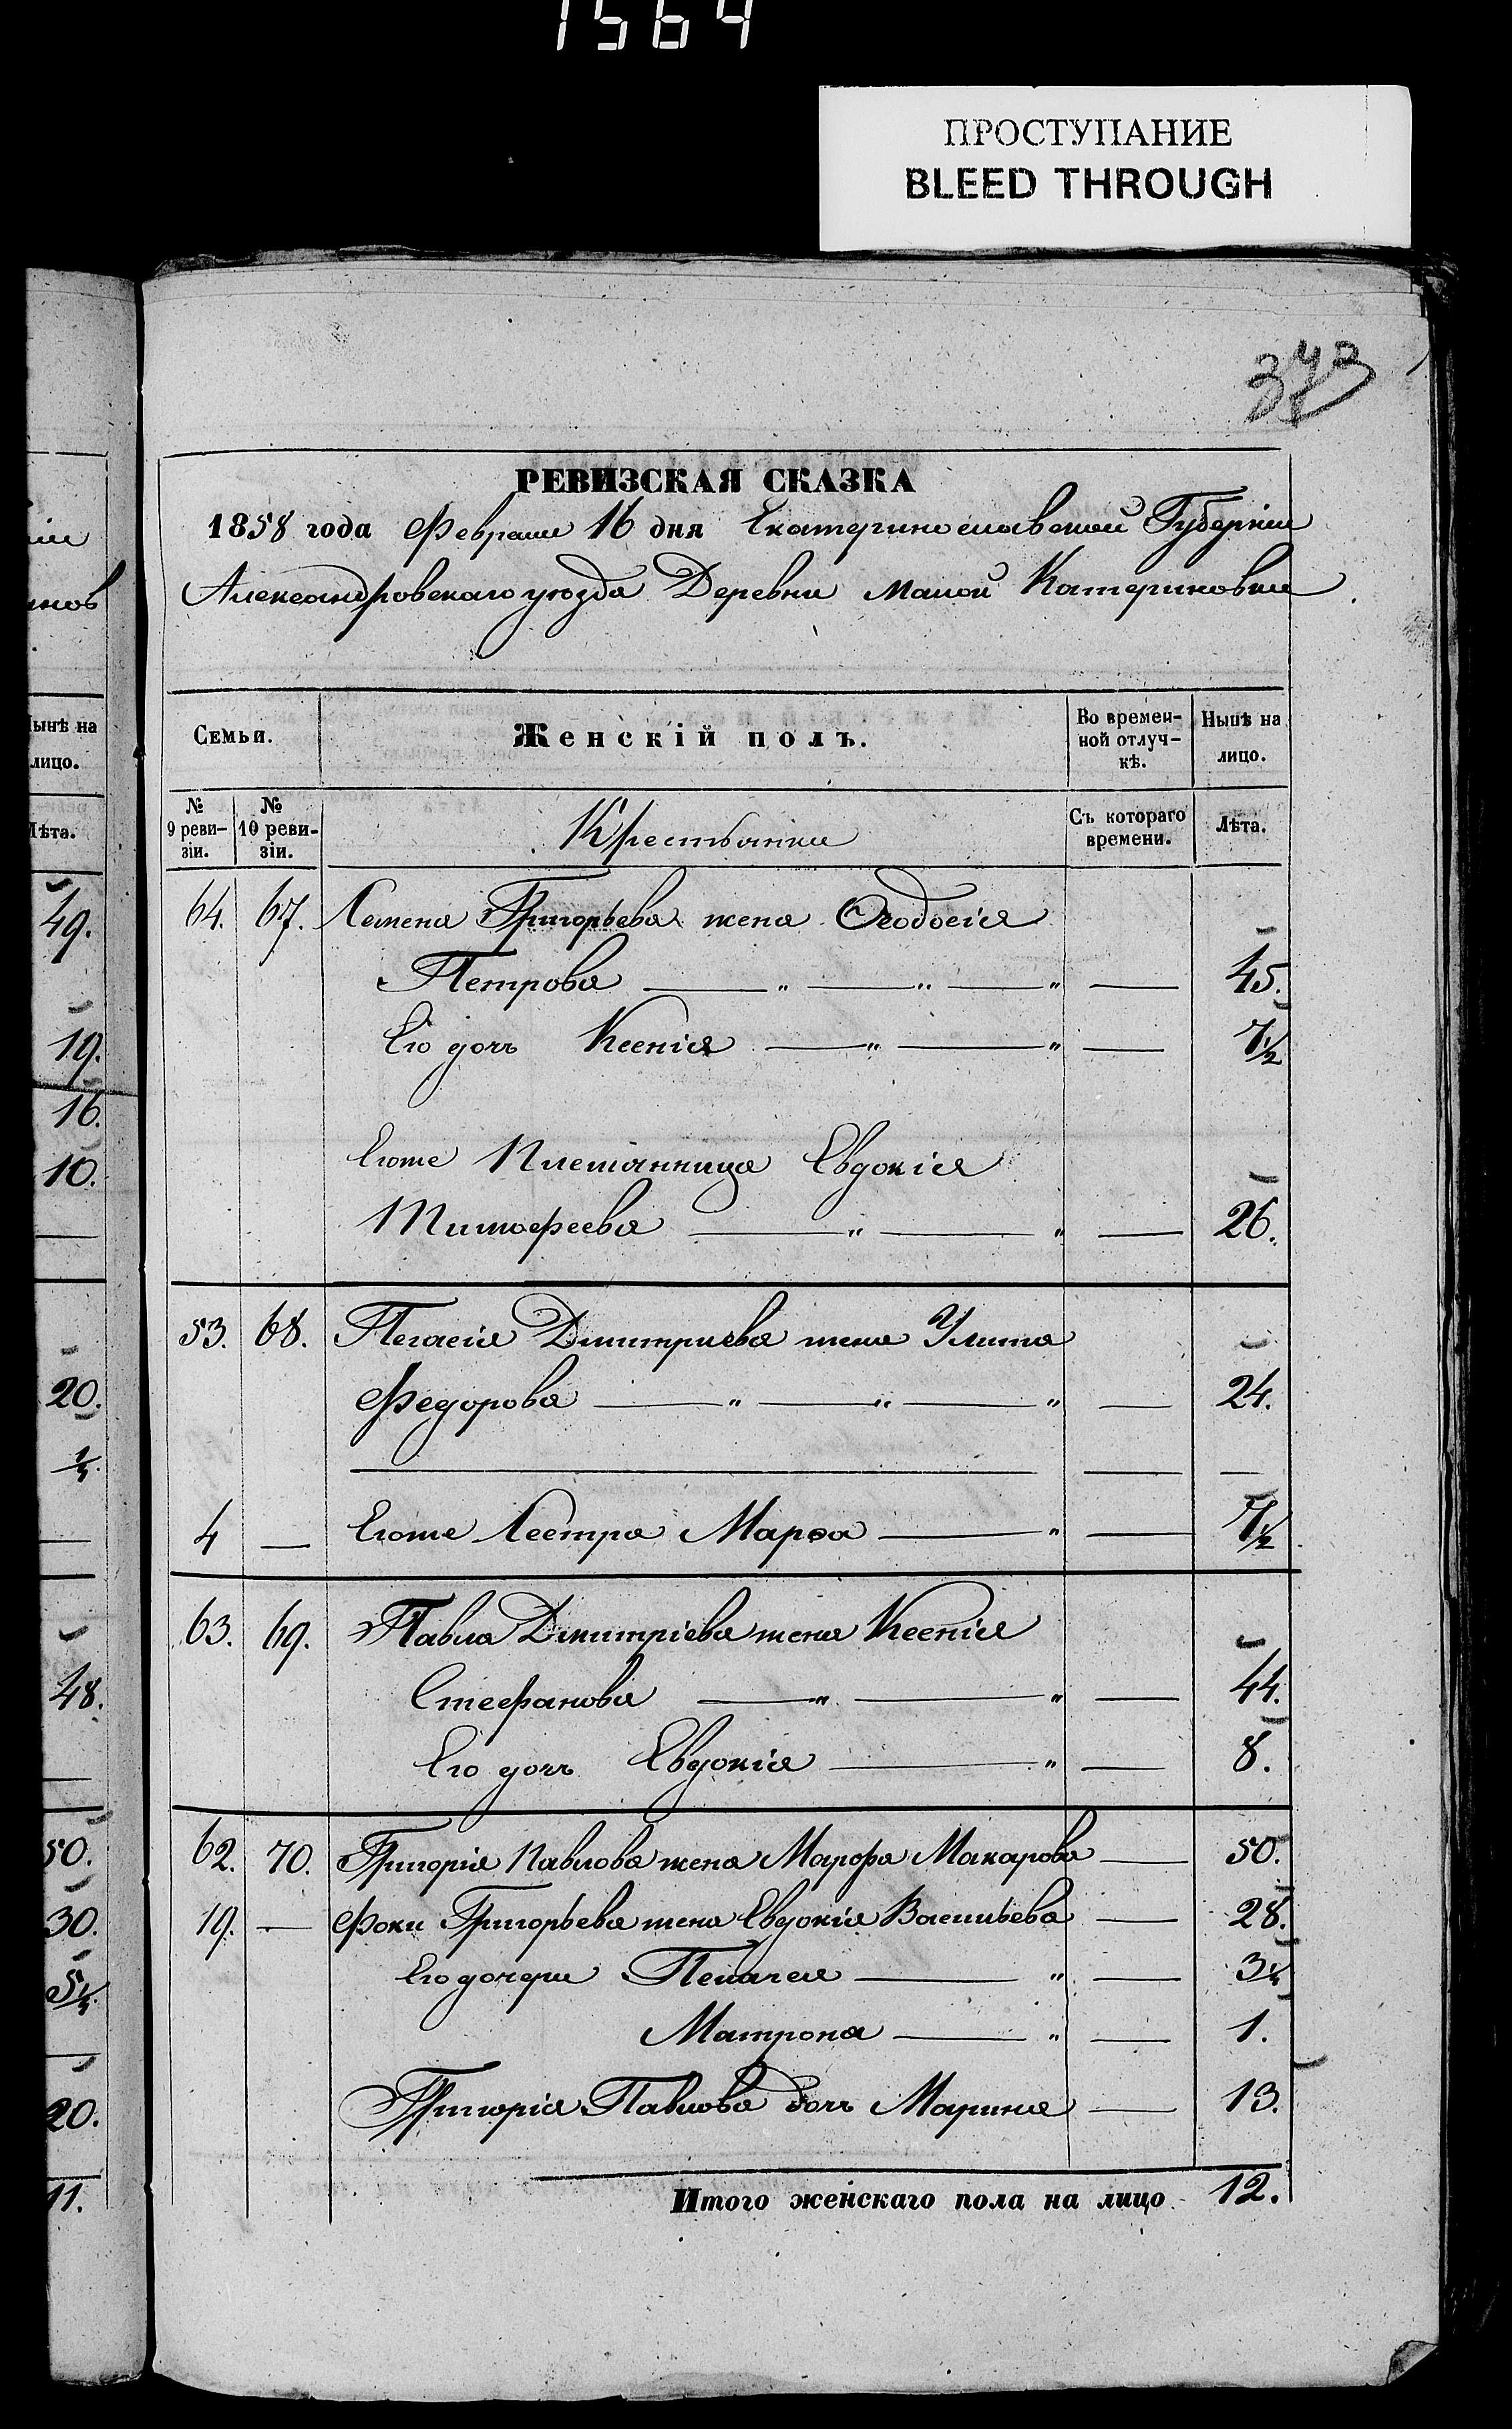 1564
ПРОСТУПАНИЕ
BLEED THROUGH
РЕВИЗСКАЯ СКАЗКА
1858 года Февраля 16 дня Екатеринославской Губерніи
Александровскаго уѣзда Деревни Малой Катериновки
Семьи.
Женскій полъ.
Во времен-
ной отлуч-
кѣ.
Нынѣ на
лицо.
№
9 реви-
зіи.
№
10 реви-
зіи.
Крестьянки
Съ котораго
времени.
Лѣта.
64. 67. Семена Григорьева жена Ѳеодосія
Петрова — „ — „ — „ — 45.
Его дочь Ксенія — „ — „ — 7½
Егоже Племянница Евдокія
Тимофеева — „ — „ — 26.
53. 68. Дмитриева жена Улита
Федорова — „ — „ — „ — 24.
4 — Егоже Сестра Марѳа — „ — 7½
63. 69. Павла Дмитріева жена Ксенія
Стефанова — „ — „ — 44.
Его дочь Евдокія — „ — 8.
62. 70. Григорія Павлова жена Марфа Макарова — 50.
19. — Фоки Григорьева жена Евдокія Васильева — 28.
Его дочери Пелагея — „ — 3½
Матрона — „ — 1.
Григорія Павлова дочь Марина — 13.
Итого женскаго пола на лицо 12.
ынѣ на
лицо.
Лѣта.
49.
19.
16.
10.
20.
48.
50.
30.
20.
11.